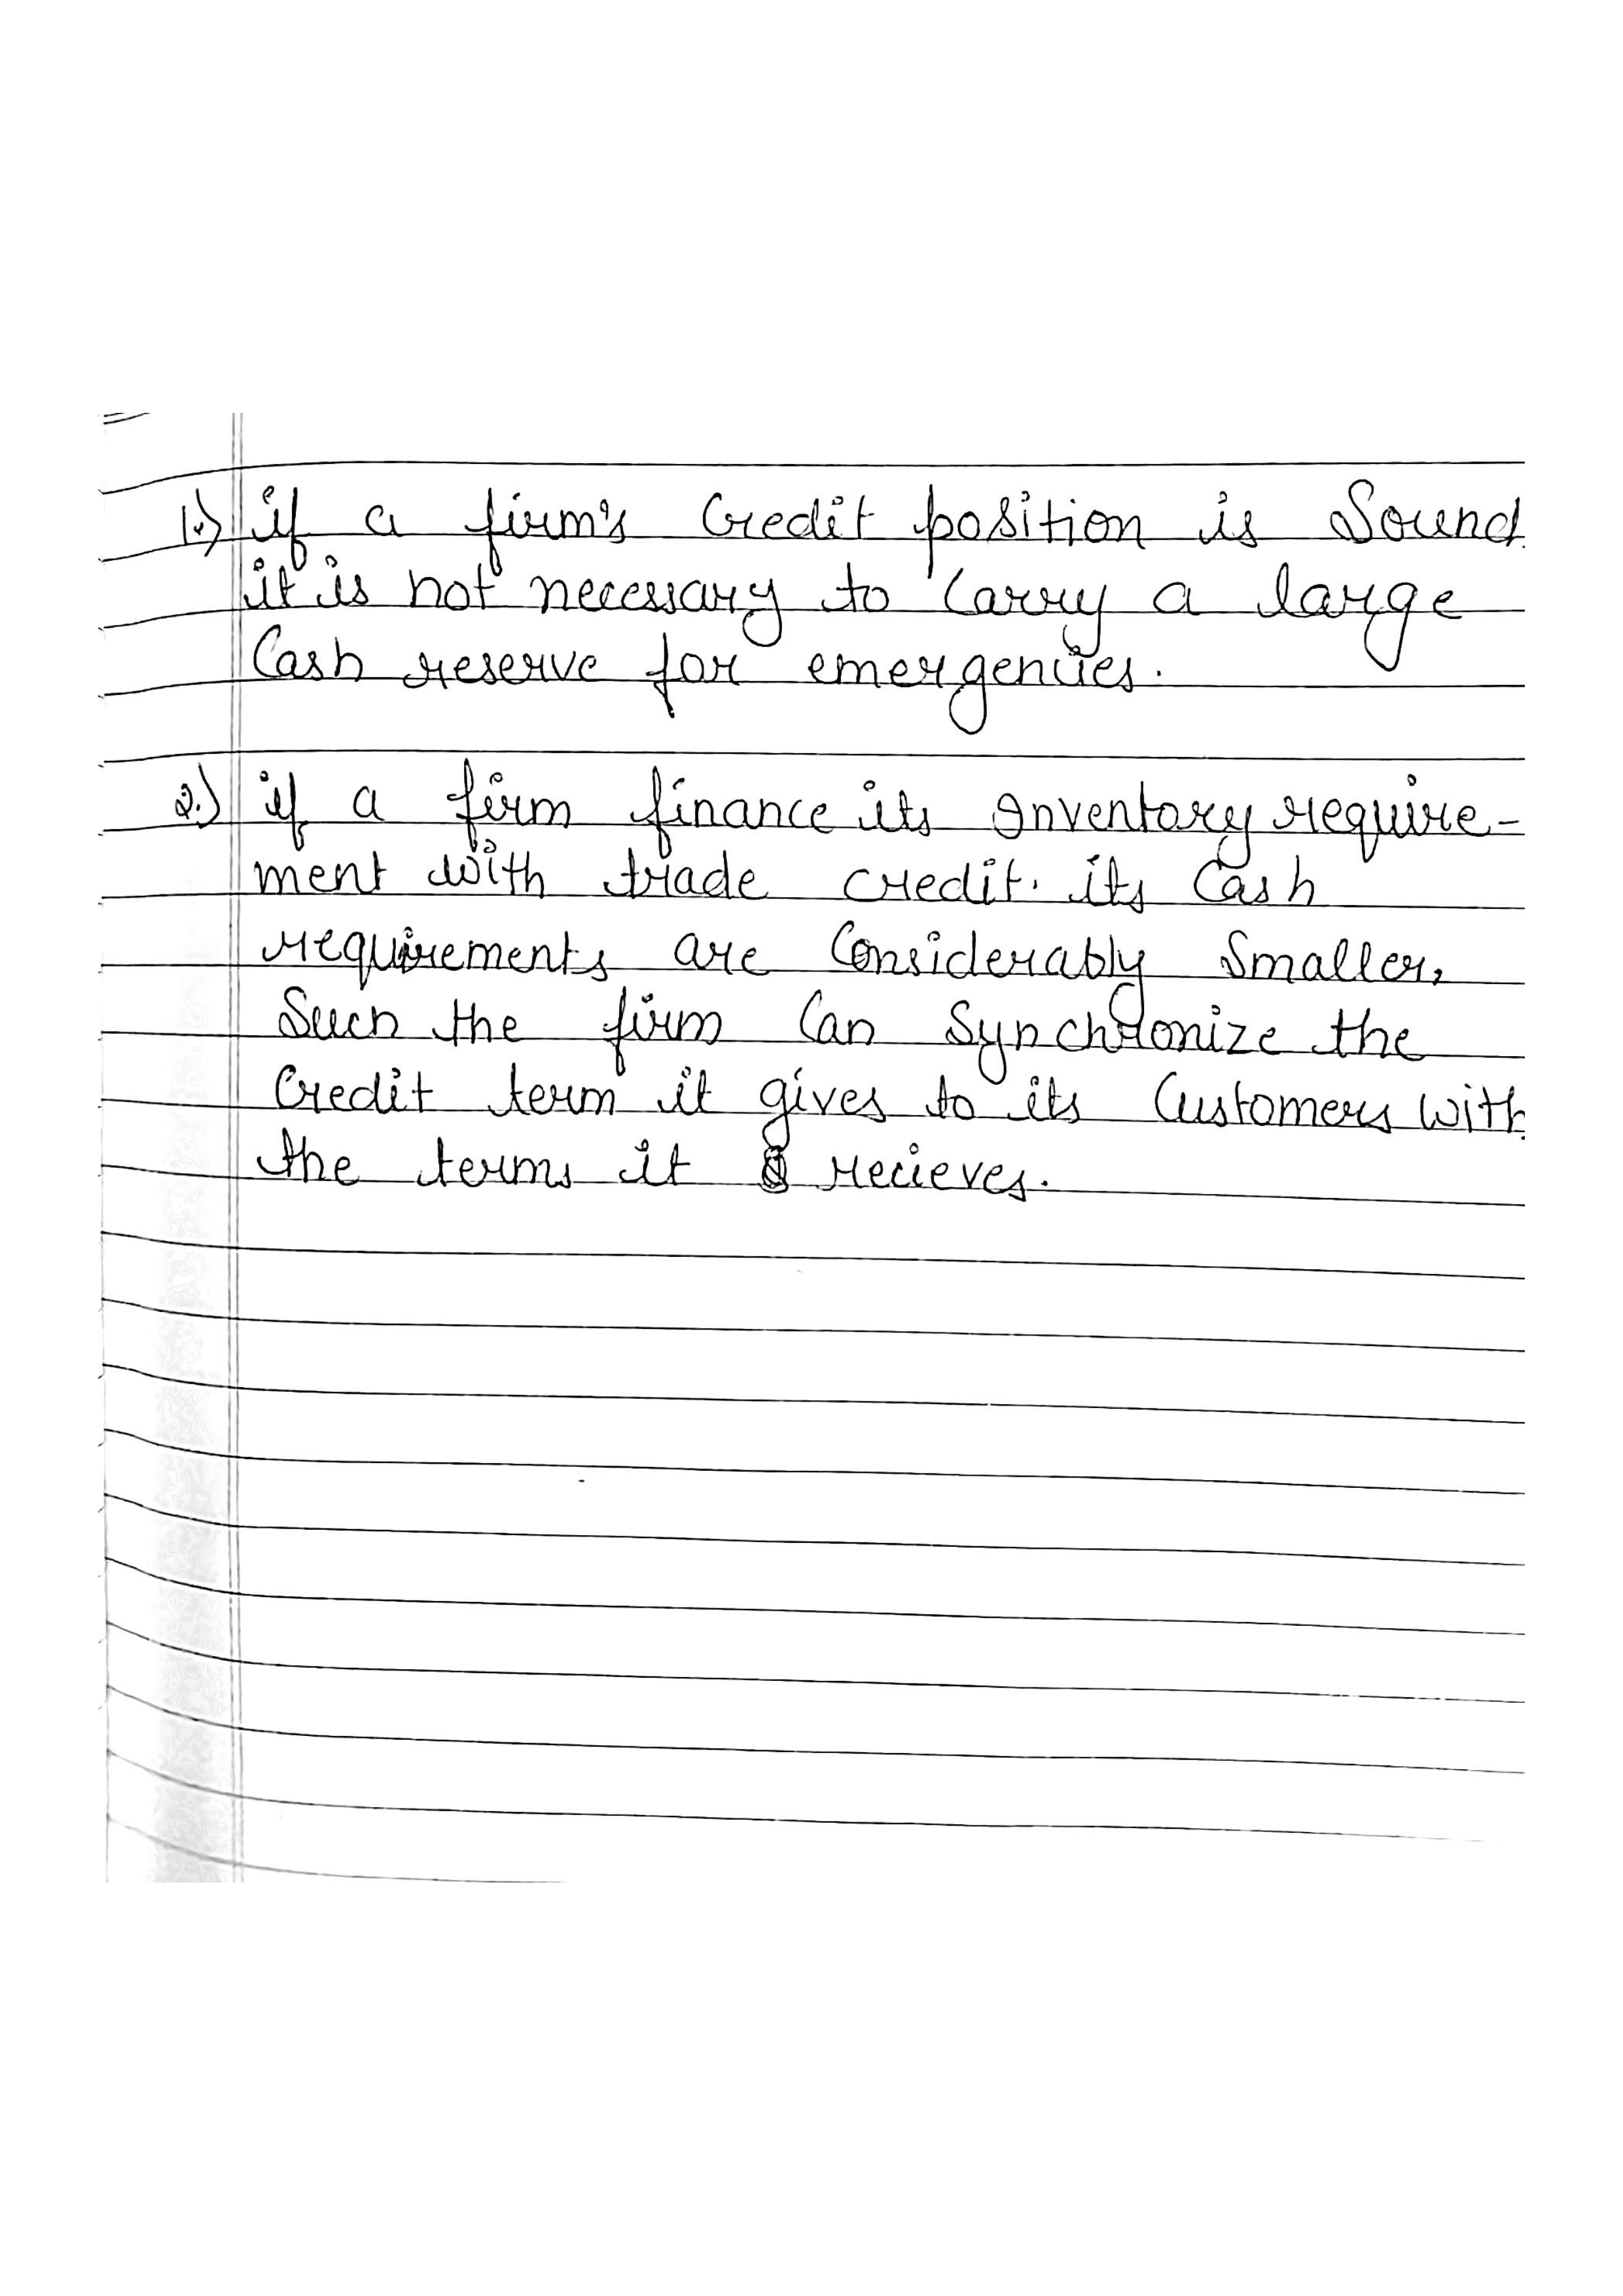 1.) if a firm's Credit position is Sound
it is not necessary to Carry a large
Cash reserve for emergencies.
2.) if a firm finance its Inventory require-
ment with trade credit. its Cash
requirements are Considerably Smaller,
Such the firm Can Synchronize the
Credit term it gives to its Customers with
the terms it recieves.